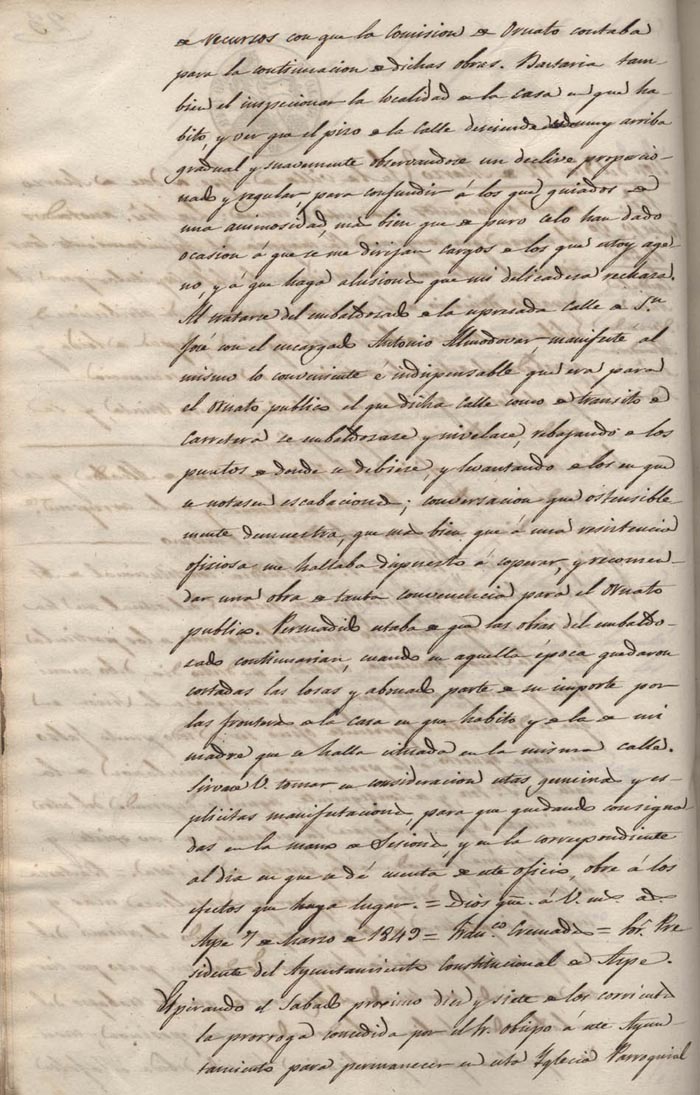 de recursos con que la Comision de Ornato contaba
para la continuacion de dichas obras. Bastaria tam-
bien el inspecionar la localidad de la casa en que ha-
bito, y ver que el piso de la Calle desciende muy arriba
gradual y suavemente observandose un declive proporcio-
nado y regular, para confundir á los que guiados de
una animosidad, mas bien que de puro celo han dado
ocasion á que se me dirijan cargos de los que estoy age-
no, y á que haga alusiones que mi delicadesa rechaza.
Al tratarse del embaldosado de la expresada calle de Sn
José con el encargado Antonio Almodovar, manifesté al
mismo lo conveniente e indispensable que era para
el Ornato publico el que dicha Calle como de transito de
Carretera se embaldosase y nivelace, rebajando de los
puntos de donde se debiese, y levantando de los en que
se notasen escabaciones; conversacion que ostensible-
mente demuestra, que mas bien que á una resistencia
oficiosa me hallaba dispuesto á coperar, y recomen-
dar una obra de tanta convenencia para el Ornato
publico. Persuadido estaba de que las obras del embaldo-
cado continuarian, cuando en aquella época quedaron
cortadas las losas y abonado parte de su importe por
las fronteras de la casa en que habito y de la de mi
madre que se halla situada en la misma calle.
Sirvase V. tomar en consideracion estas genuinas y es-
plicitas manifestaciones, para que quedando consigna
das en la mano de Sesiones, y en la correspondiente
al dia en que se dé cuenta de este oficio, obre á los
efectos que haya lugar. = Dios gue. á V. ms. as.
Aspe 7 de Marzo de 1849 = Franco Cremades = Sr. Pre
sidente del Ayuntamiento Constitucional de Aspe.
Espirando el Sabado proximo diez y siete de los corrientes
la prorroga concedida por el Sr. obispo á este Ayun-
tamiento para permanecer en esta Iglecia Parroquial